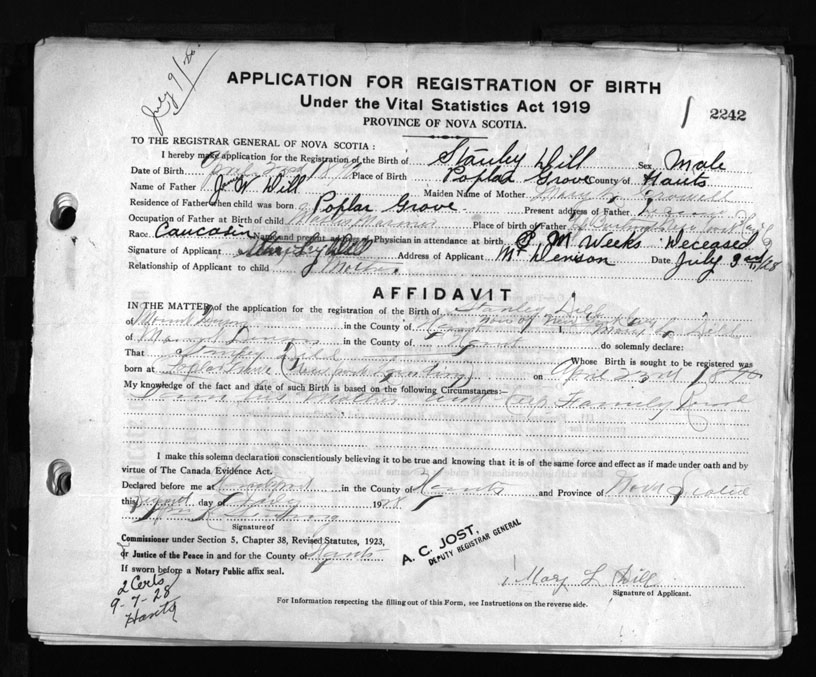 July 9/28
APPLICATION FOR REGISTRATION OF BIRTH
Under the Vital Statistics Act 1919
2242
PROVINCE OF NOVA SCOTIA.
TO THE REGISTRAR GENERAL OF NOVA SCOTIA :
I hereby make application for the Registration of the Birth of Stanley Dill Sex Male
Date of Birth Place of Birth Poplar Grove County of Hants
Name of Father J. W. Dill Maiden Name of Mother
Residence of Father when child was born Poplar Grove Present address of Father
Occupation of Father at Birth of child Master Mariner Place of birth of Father
Race Caucasin Name and present address of Physician in attendance at birth M Weeks Deceased
Signature of Applicant Address of Applicant Mt Denson Date July 3rd 1928
Relationship of Applicant to child Mother
AFFIDAVIT
IN THE MATTER of the application for the registration of the Birth of Stanley Dill
of in the County of
of in the County of do solemnly declare:
That Stanley Dill Whose Birth is sought to be registered was
born at Poplar Grove on April 23rd
My knowledge of the fact and date of such Birth is based on the following Circumstances:—
I am his Mother and Family
I make this solemn declaration conscientiously believing it to be true and knowing that it is of the same force and effect as if made under oath and by
virtue of The Canada Evidence Act.
Declared before me at in the County of Hants and Province of Nova Scotia
this day of 1928
Signature of
Commissioner under Section 5, Chapter 38, Revised Statutes, 1923,
or Justice of the Peace in and for the County of Hants
If sworn before a Notary Public affix seal.
A. C. JOST,
DEPUTY REGISTRAR GENERAL
2 Certs
9-7-28
Hants
Mary L Dill
Signature of Applicant.
For Information respecting the filling out of this Form, see Instructions on the reverse side.